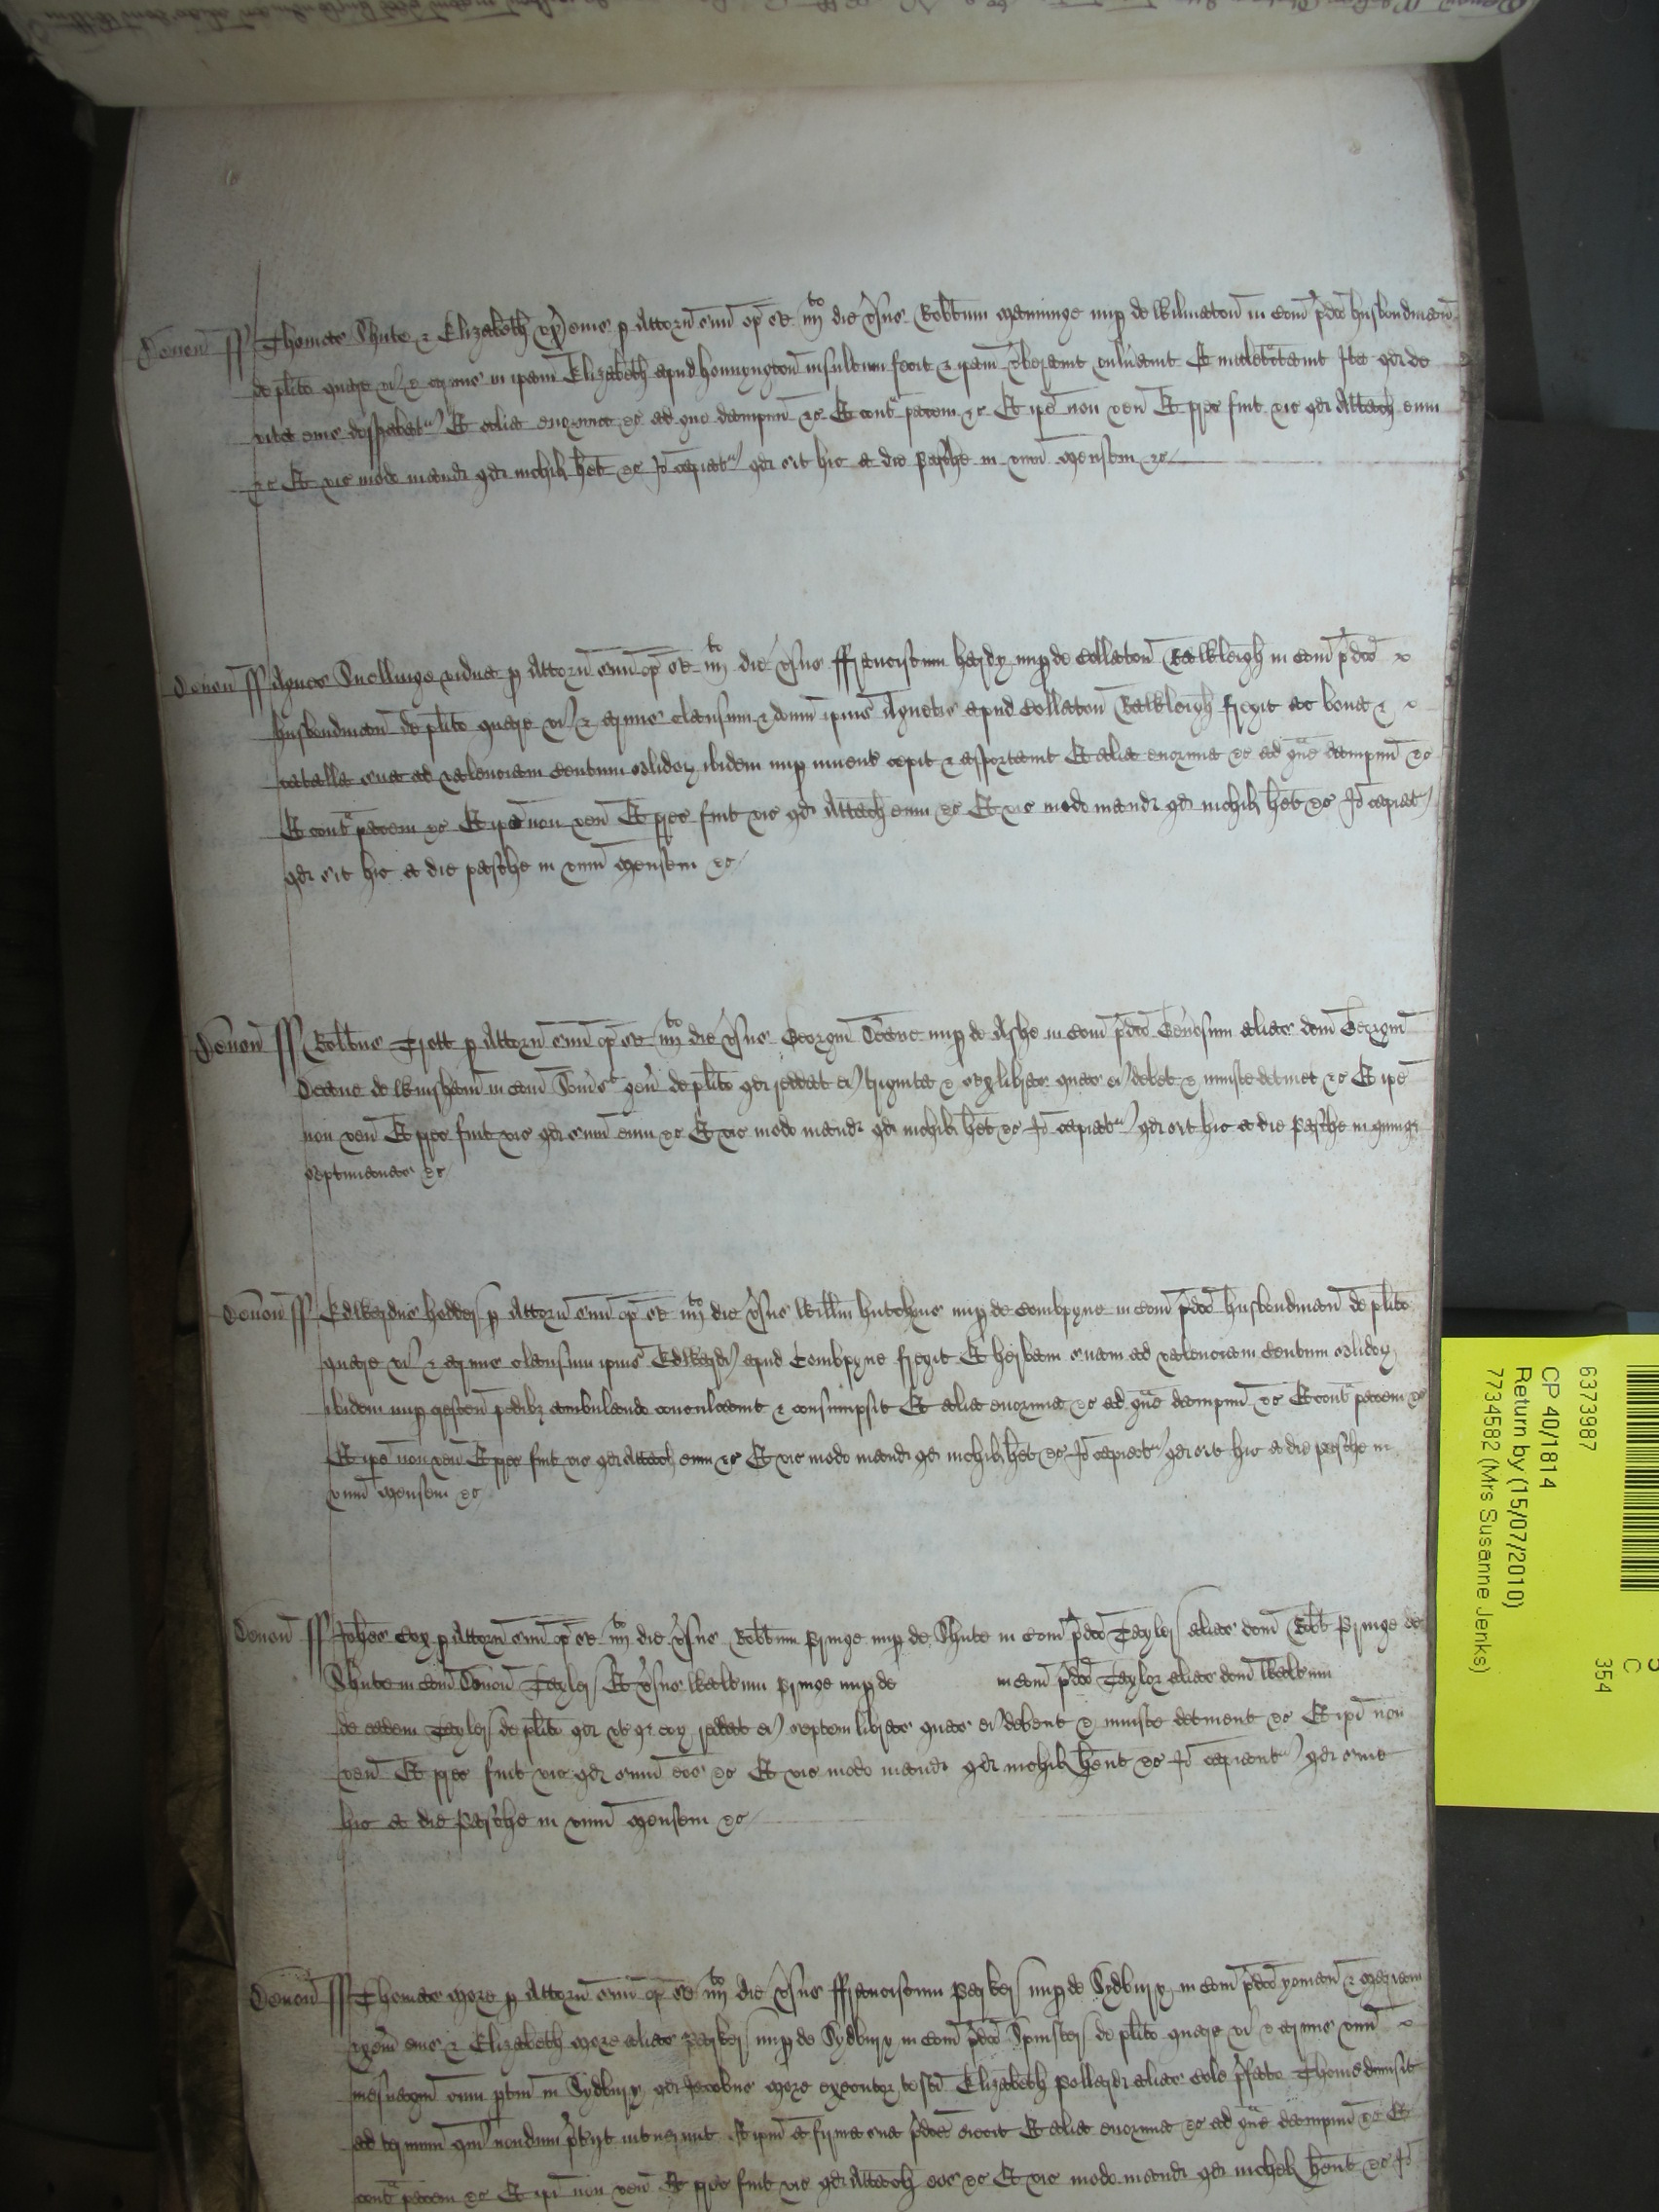 Devon ss Thomas Shute & Elizabeth ux eius p Attorn suu op se iiij to die vsus Robtum Manninge nup de Wilmaton in Com pdco husbondman
de plito quare vi & armis in ipam Elizabeth apud honnyngton insultum fecit & ipam vberavit vulnavit Et maletctavit Ita qd de
vita eius despabat Et alia enormia &c ad gue dampnu &c Et cont pacem &c Et ipe non ven Et prec fuit vic qd Attach eum
&c Et vic modo mand qd nichil het &c Io capiat qd sit hic a die Pasche in unu Mensem &c
Devon ss Agnes Snellinge vidua p Attorn suu op se iiij to die vsus ffranciscum hardy nup de Collaton Rawleigh in Com pdco
husbondman de plito quare vi & armis clausum & domu ipius Agnetis apud Collaton Rawleigh fregit ac bona &
catalla sua ad valenciam Centum solidor ibidem nup invent cepit & asportavit Et alia enormia &c ad gue dampnu &c
Et cont pacem &c Et ipe non ven Et prec fuit vic qd Attach eum &c Et vic modo mand qd nichil het &c Io capiat
qd sit hic a die pasche in unu Mensem &c
Devon ss Robtus Trett p Attorn suu op se iiij to die vsus Georgiu Deane nup de Ashe in Com pdco Genosum alias dcm Georgiu
Deane de in Com Soms gen de plito qd reddat ei triginta & sex libras quas ei debet & iniuste detinet &c Et ipe
non ven Et prec fuit vic qd sum eum &c Et vic modo mand qd nichil het &c Io capiat qd sit hic a die Pasche in quinqz
septimanas &c
Devon ss Edwardus hodder p Attorn suu op se iiij to die vsus Willm hutchyns nup de Combpyne in Com pdco husbondman de plito
quare vi & armis clausum ipius Edwardi apud Combpyne fregit Et herbam suam ad valenciam Centum solidor
ibidem nup crescen pedibz ambulando conculcavit & consumpsit Et alia enormia &c ad gue dampnu &c Et cont pacem &c
Et ipe non ven Et prec fuit vic qd Attach eum &c Et vic modo mand qd nichil het &c Io capiat qd sit hic a die pasche in
unu Mensem &c
Devon ss Johes Cox p Attorn suu op se iiij to die vsus Robtum Pringe nup de Shute in Com pdco Tayler alias dcm Robt Pringe de
Shute in Com Devon Tayler Et vsus Waltum Pringe nup de in Com pdco Taylor alias dcm Waltum
de eadem Tayler de plito qd ut qr eor reddat ei septem libras quas ei debent & iniuste detinent &c Et ipi non
ven Et prec fuit vic qd sum eos &c Et vic modo mand qd nichil hent &c Io capiant qd sint
hic a die Pasche in unu Mensem &c
Devon ss Thomas More p Attorn suu op se iiij to die vsus ffranciscum Parker nup de Sydbury in Com pdco yoman & Mariam
uxem eius & Elizabeth More alias Parker nup de Sydbury in Com pdco Spinster de plito quare vi & armis unu
mesuagiu cum ptin in Sydbury qd Jacobus More executor testi Elizabeth Pollard alias Cole pfato Thome dimisit
ad terminu qui nondum pterijt intraverunt Et ipm a firma sua pdca eiecit Et alia enormia &c ad gue dampnu &c Et
cont pacem &c Et ipi non ven Et prec fuit vic qd Attach eos &c Et vic modo mand qd nichil hent &c Io
6373987
CP 40/1814
Return by (15/07/2010)
7734582 (Mrs Susanne Jenks)
C
354